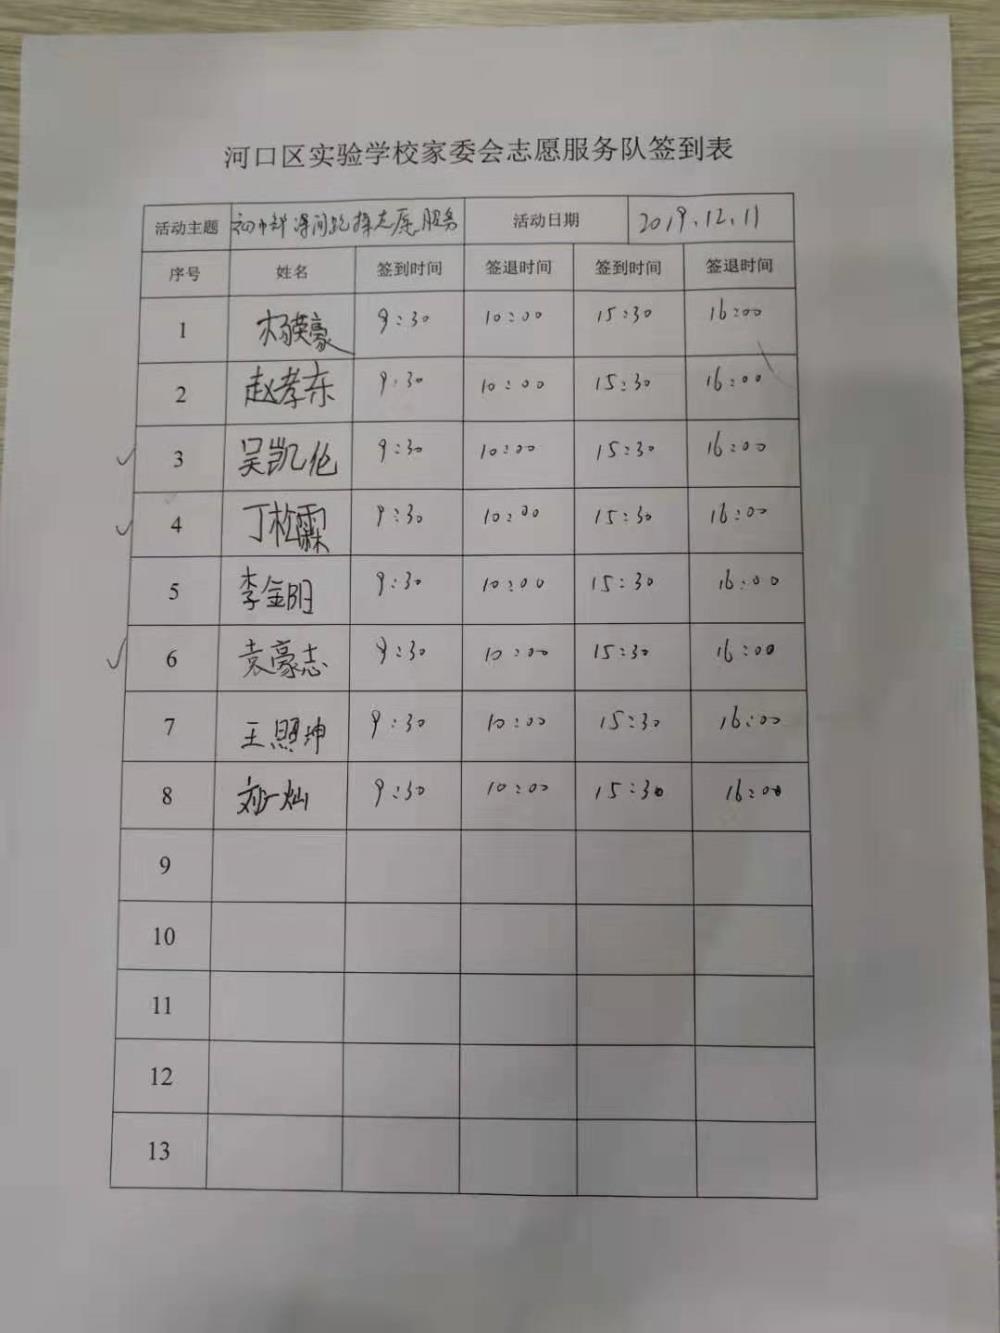 河口区实验学校家委会志愿服务队签到表
活动主题 初中部课间跑操志愿服务 活动日期 2019.12.11
序号 姓名 签到时间 签退时间 签到时间 签退时间
1 杨英豪 9:30 10:00 15:30 16:00
2 赵孝东 9:30 10:00 15:30 16:00
3 吴凯伦 9:30 10:00 15:30 16:00
4 丁松霖 9:30 10:00 15:30 16:00
5 李金阳 9:30 10:00 15:30 16:00
6 袁豪志 9:30 10:00 15:30 16:00
7 王照坤 9:30 10:00 15:30 16:00
8 刘一灿 9:30 10:00 15:30 16:00
9
10
11
12
13